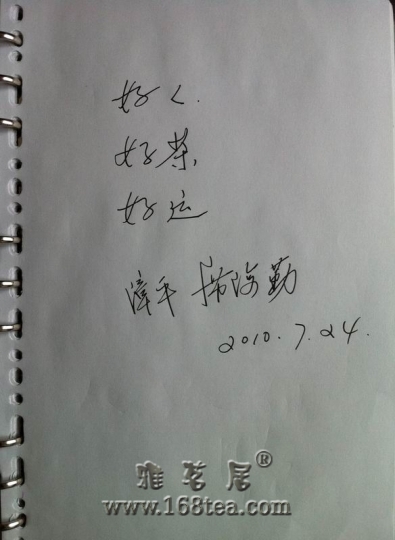 好人.
好茶,
好运
漳平 海勤
2010.7.24.
雅茗居®
www.168tea.com